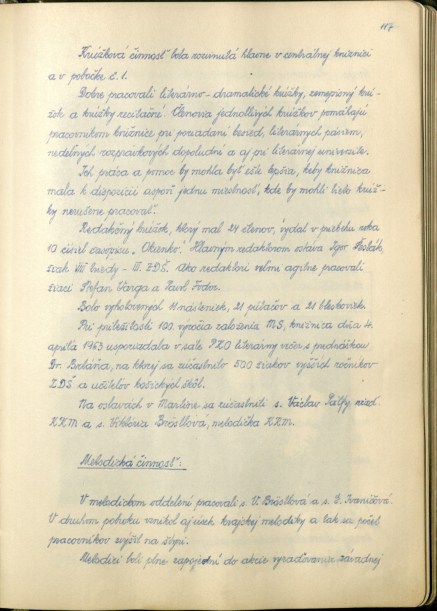 117
Krúžková činnosť bola rozvinutá hlavne v centrálnej knižnici
a v pobočke č. 1.
Dobre pracovali literárno-dramatické krúžky, zemepisný krú-
žok a krúžky recitačné. Členovia jednotlivých krúžkov pomáhajú
pracovníkom knižnice pri poriadaní besied, literárnych pásiem,
nedeľných rozprávkových dopoludní a aj pri literárnej univerzite.
Ich práca a prínos by mohla byť ešte lepšia, keby knižnica
mala k dispozícii aspoň jednu miestnosť, kde by mohli tieto krúž-
ky nerušene pracovať.
Redakčný krúžok, ktorý mal 24 členov, vydal v priebehu roka
10 čísiel časopisu „Okienko". Hlavným redaktorom ostáva Igor
žiak triedy - III. ZDŠ. Ako redaktori veľmi agilne pracovali
žiaci Štefan Varga a Pavl Fodor.
Bolo vyhotovených 11 násteniek, 21 pútačov a 21 bleskoviek.
Pri príležitosti 100. výročia založenia MS, knižnica dňa 4.
apríla 1963 usporiadala v sále PKO literárny večer s prednáškou
Dr. na ktorej sa zúčastnilo 500 žiakov vyšších ročníkov
ZDŠ a učiteľov košických škôl.
Na oslavách v Martine sa zúčastnili s. Václav Pálfy riad.
KKM a s. Viktória Bröstlová, metodička KKM.
Metodická činnosť:
V metodickom oddelení pracovali s. V. Bröstlová a s. Ivaničová.
V druhom polroku vznikol aj úsek krajskej metodiky a tak sa počet
pracovníkov zvýšil na štyri.
Metodici boli plne zapojení do akcie vyraďovania závadnej